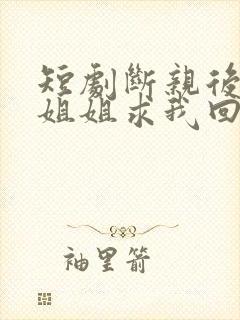 短劇斷親後
姐姐求我回
袖里箭